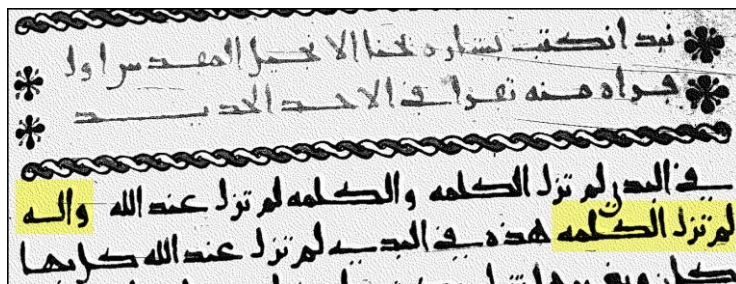 نبد انكتب بشاره يحنا الانجيل المقدس اول
قراه منه تقرا في الاحد الجديد
في البدى لم تزل الكلمه والكلمه لم تزل عند الله واله
لم تزل الكلمه هذه في البديه لم تزل عند الله كل بها
كان وبغيرها